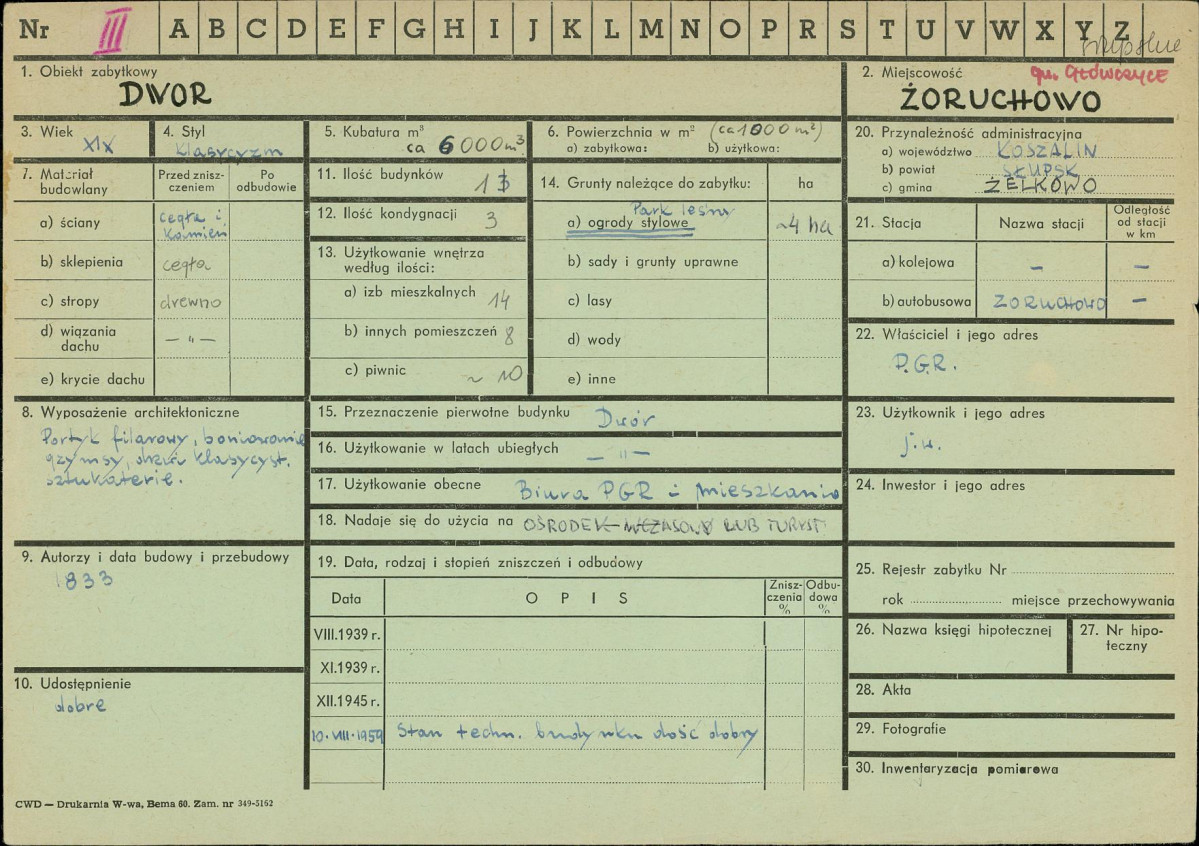 Nr III A B C D E F G H I J K L M N O P R S T U V W X Y Z
słupskie
gm. GŁÓWCZYCE
1. Obiekt zabytkowy
DWOR
2. Miejscowość
ŻORUCHOWO
3. Wiek
XIX
4. Styl
Klasycyzm
5. Kubatura m³
ca 6000 m³
6. Powierzchnia w m² (ca 1000 m²)
a) zabytkowa: b) użytkowa:
7. Materiał budowlany
Przed zniszczeniem
Po odbudowie
a) ściany cegła i kamień
b) sklepienia cegła
c) stropy drewno
d) wiązania dachu — " —
e) krycie dachu
8. Wyposażenie architektoniczne
Portyk filarowy, boniowanie
gzymsy, drzwi klasycyst.
sztukaterie.
9. Autorzy i data budowy i przebudowy
1833
10. Udostępnienie
dobre
11. Ilość budynków 1
12. Ilość kondygnacji 3
13. Użytkowanie wnętrza
według ilości:
a) izb mieszkalnych 14
b) innych pomieszczeń 8
c) piwnic ~ 10
14. Grunty należące do zabytku: ha
Park leśny
a) ogrody stylowe ~4 ha
b) sady i grunty uprawne
c) lasy
d) wody
e) inne
15. Przeznaczenie pierwotne budynku Dwór
16. Użytkowanie w latach ubiegłych — " —
17. Użytkowanie obecne Biura PGR i mieszkania
18. Nadaje się do użycia na OŚRODEK WCZASOWY LUB TURYST
19. Data, rodzaj i stopień zniszczeń i odbudowy
Data OPIS Zniszczenia % Odbudowa %
VIII.1939 r.
XI.1939 r.
XII.1945 r.
10.VIII.1959 Stan techn. budynku dość dobry
20. Przynależność administracyjna
a) województwo KOSZALIN
b) powiat SŁUPSK
c) gmina ŻELKOWO
21. Stacja Nazwa stacji Odległość od stacji w km
a) kolejowa — —
b) autobusowa ŻORUCHOWO —
22. Właściciel i jego adres
P.G.R.
23. Użytkownik i jego adres
j.w.
24. Inwestor i jego adres
25. Rejestr zabytku Nr
rok miejsce przechowywania
26. Nazwa księgi hipotecznej
27. Nr hipoteczny
28. Akta
29. Fotografie
30. Inwentaryzacja pomiarowa
CWD — Drukarnia W-wa, Bema 60. Zam. nr 349-5162